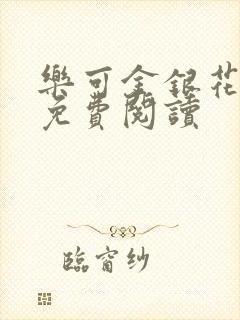 樂可金銀花
免費閱讀
臨窗紗